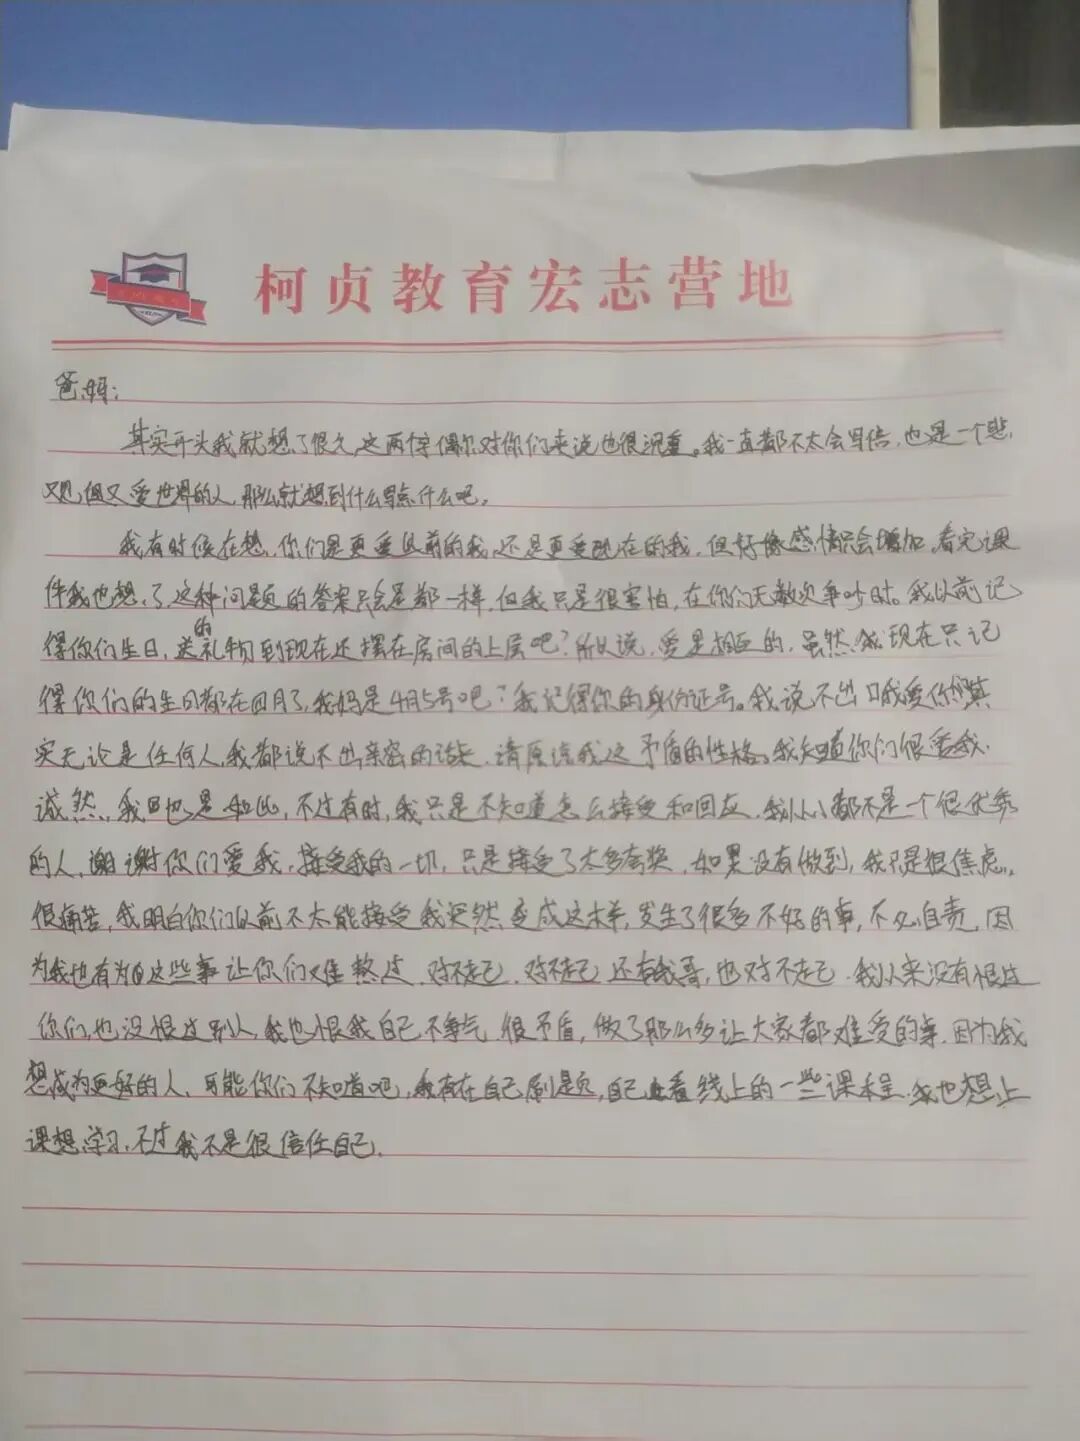 柯贞教育宏志营地
爸妈:
其实开头我就想了很久,这两字偶尔对你们来说也很沉重。我一直都不太会写信,也是一个悲
观但又爱世界的人,那么就想到什么写点什么吧。
我有时候在想,你们是更爱以前的我,还是更爱现在的我,但好像感情只会增加,看完课
件我也想了,这种问题的答案只会是都一样,但我只是很害怕,在你们无数次争吵时。我以前记
得你们生日,送的礼物到现在还摆在房间的上层吧?所以说,爱是相互的,虽然我现在只记
得你们的生日都在四月了,我妈是4月5号吧?我记得你的身份证号。我说不出口我爱你们,其
实无论是任何人,我都说不出亲密的话,请原谅我这矛盾的性格。我知道你们很爱我,
诚然,我也是如此,不过有时,我只是不知道怎么接受和回应,我从小都不是一个很优秀
的人,谢谢你们爱我,接受我的一切,只是接受了太多夸奖,如果没有做到,我只是很焦虑,
很痛苦,我明白你们以前不太能接受我突然变成这样,发生了很多不好的事,不必自责,因
为我也有为这些事让你们难熬过,对不起,对不起,还有我哥,也对不起,我从来没有恨过
你们,也没恨过别人,我也恨我自己不争气,很矛盾,做了那么多让大家都难受的事,因为我
想成为更好的人,可能你们不知道吧,我有在自己刷题,自己看线上的一些课程,我也想上
课想学习,不过我不是很信任自己.